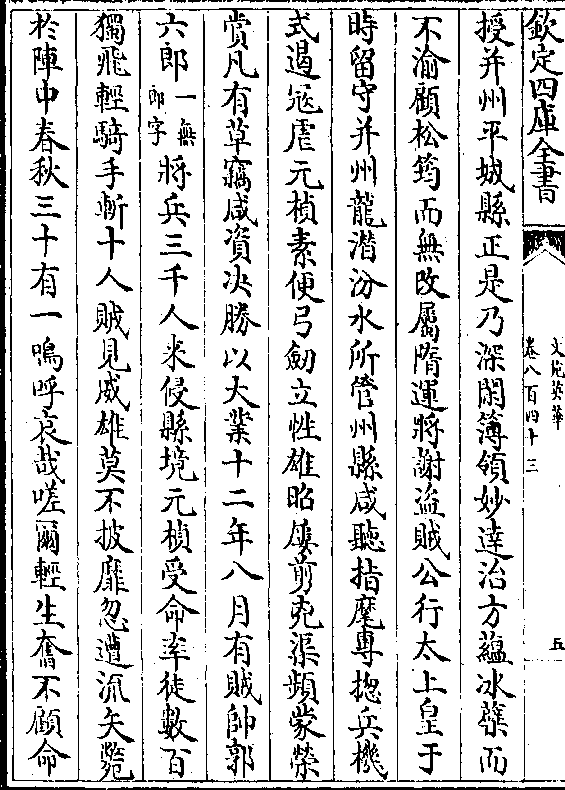 欽定四庫全書
文苑英華
卷八百四十三
五
授并州平城縣正是乃深閑簿領妙達治方蘊冰蘗而
不渝顧松筠而無改屬隋運將謝盜賊公行太上皇于
時留守并州龍潛汾水所管州縣咸聽指麾專揔兵機
式遏冦虐元楨素便弓劒立性雄昭屢剪兇渠頻蒙榮
賞凡有草竊咸資決勝以大業十二年八月有賊帥郭
六郎一無郎字將兵三千人来侵縣境元楨受命率徒數百
獨飛輕騎手斬十人賊見威雄莫不披靡忽遭流矢斃
於陣中春秋三十有一嗚呼哀哉嗟爾輕生奮不顧命